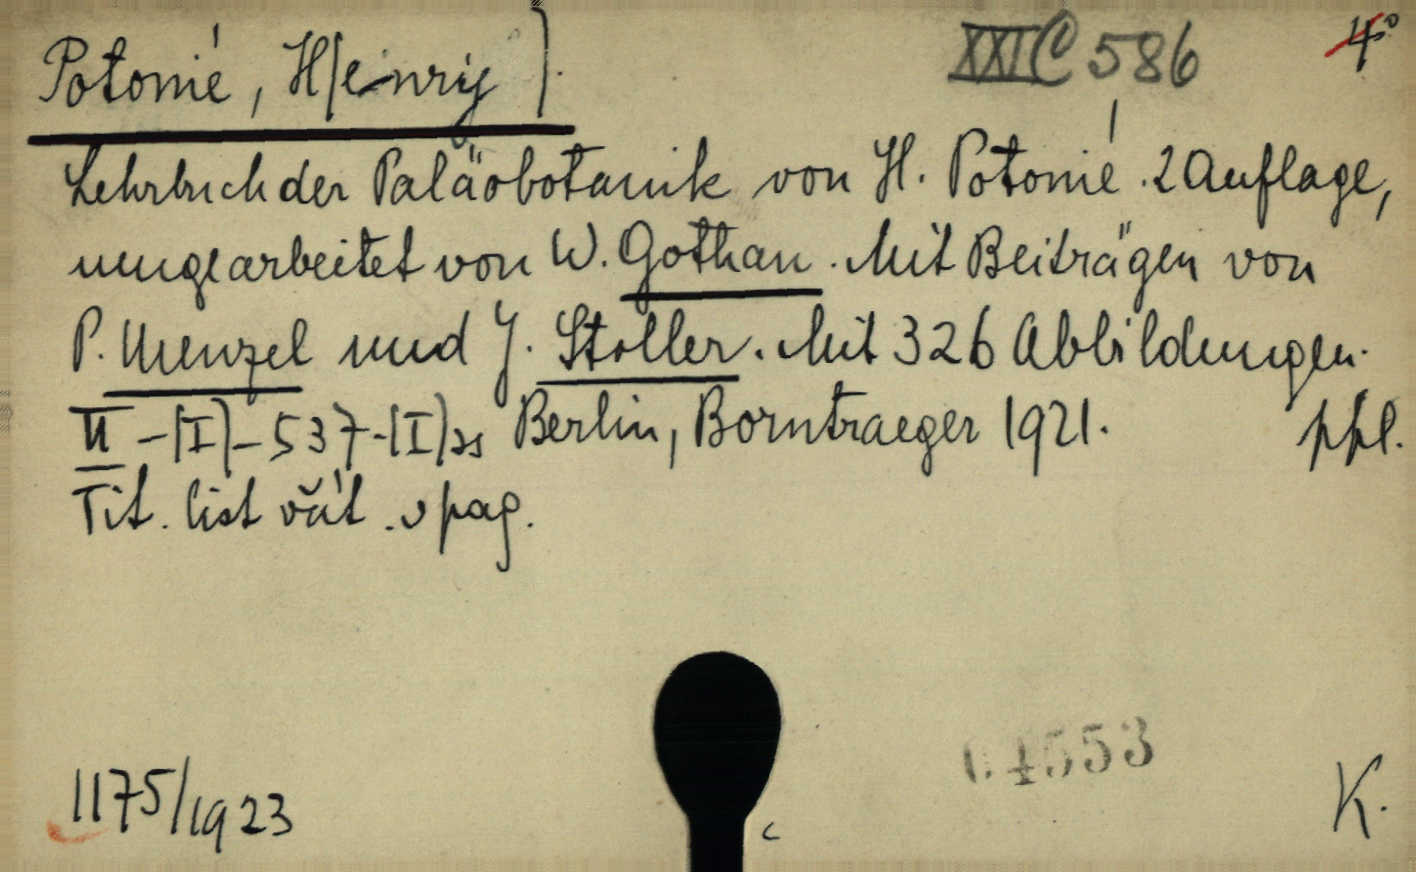 Potonié, H[enry].
XXI C 586
4°
Lehrbuch der Paläobotanik von H. Potonié. 2 Auflage,
umgearbeitet von W. Gothan. Mit Beiträgen von
P. Menzel und J. Stoller. Mit 326 Abbildungen.
II-[I]-537-[I] ss Berlin, Borntraeger 1921. ppl.
Tit. list včít. v pag.
04553
1175/1923
K.
c